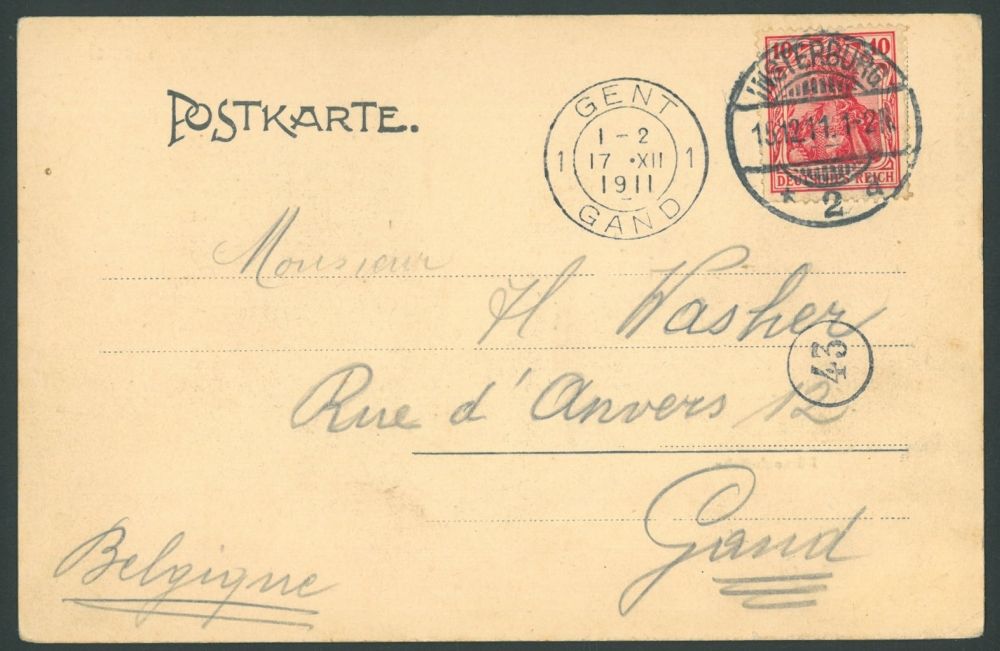 POSTKARTE.
GENT
1 - 2
1 17 · XII 1
1911
GAND
10 10
DEUTSCHES REICH
INSTERBURG
12.11. 1-2
* 2 d
Monsieur
H Washer
43
Rue d'Anvers 12
Gand
Belgique